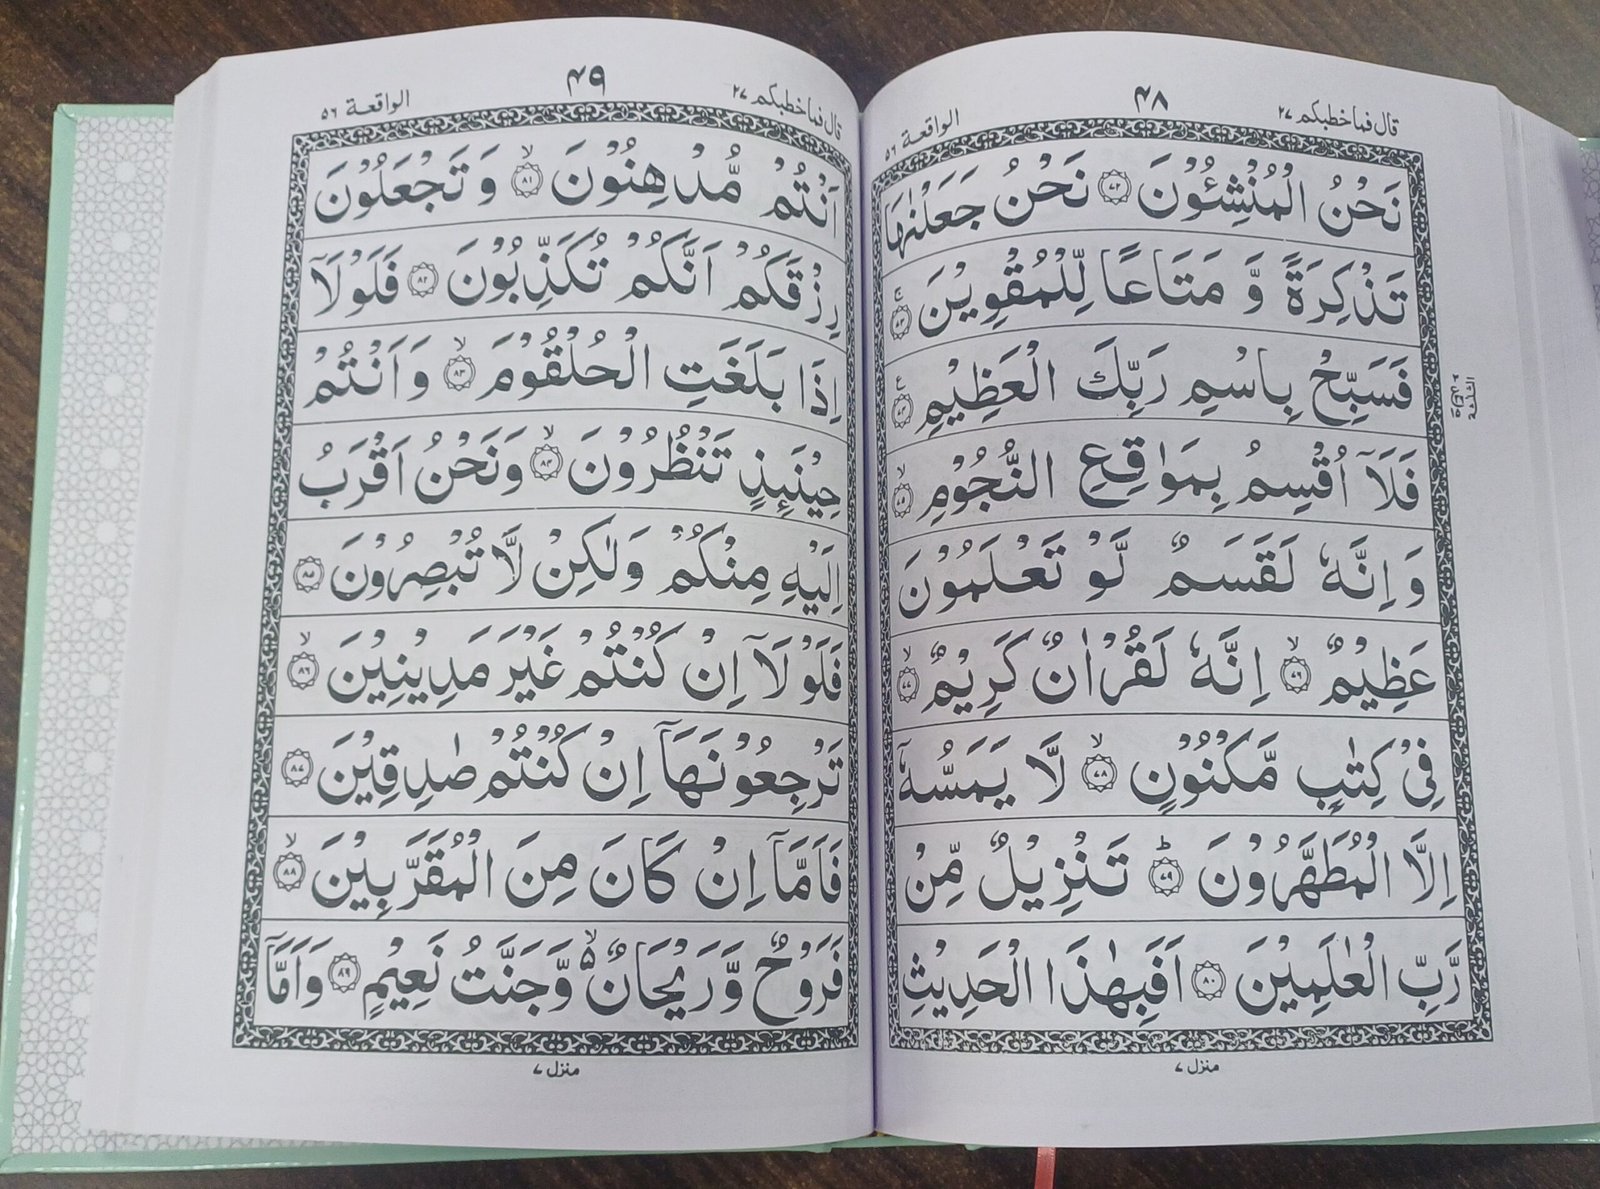 قال فما خطبكم ٢٧
٤٨
الواقعة ٥٦
نَحْنُ الْمُنْشِئُوْنَ ﴿٧٢﴾ نَحْنُ جَعَلْنٰهَا
تَذْكِرَةً وَّ مَتَاعًا لِّلْمُقْوِيْنَ ﴿٧٣﴾ۚ
فَسَبِّحْ بِاسْمِ رَبِّكَ الْعَظِيْمِ ﴿٧٤﴾ ع
فَلَآ اُقْسِمُ بِمَوٰقِعِ النُّجُوْمِ ﴿٧٥﴾ۙ
وَ اِنَّهٗ لَقَسَمٌ لَّوْ تَعْلَمُوْنَ
عَظِيْمٌ ﴿٧٦﴾ۙ اِنَّهٗ لَقُرْاٰنٌ كَرِيْمٌ ﴿٧٧﴾ۙ
فِيْ كِتٰبٍ مَّكْنُوْنٍ ﴿٧٨﴾ۙ لَّا يَمَسُّهٗٓ
اِلَّا الْمُطَهَّرُوْنَ ﴿٧٩﴾ؕ تَنْزِيْلٌ مِّنْ
رَّبِّ الْعٰلَمِيْنَ ﴿٨٠﴾ اَفَبِهٰذَا الْحَدِيْثِ
منزل ٧
قال فما خطبكم ٢٧
٤٩
الواقعة ٥٦
اَنْتُمْ مُّدْهِنُوْنَ ﴿٨١﴾ۙ وَ تَجْعَلُوْنَ
رِزْقَكُمْ اَنَّكُمْ تُكَذِّبُوْنَ ﴿٨٢﴾ فَلَوْلَآ
اِذَا بَلَغَتِ الْحُلْقُوْمَ ﴿٨٣﴾ۙ وَ اَنْتُمْ
حِيْنَئِذٍ تَنْظُرُوْنَ ﴿٨٤﴾ۙ وَنَحْنُ اَقْرَبُ
اِلَيْهِ مِنْكُمْ وَلٰكِنْ لَّا تُبْصِرُوْنَ ﴿٨٥﴾
فَلَوْلَآ اِنْ كُنْتُمْ غَيْرَ مَدِيْنِيْنَ ﴿٨٦﴾ۙ
تَرْجِعُوْنَهَآ اِنْ كُنْتُمْ صٰدِقِيْنَ ﴿٨٧﴾
فَاَمَّآ اِنْ كَانَ مِنَ الْمُقَرَّبِيْنَ ﴿٨٨﴾ۙ
فَرَوْحٌ وَّ رَيْحَانٌ ۵ۙ وَّجَنَّتُ نَعِيْمٍ ﴿٨٩﴾ وَ اَمَّآ
منزل ٧